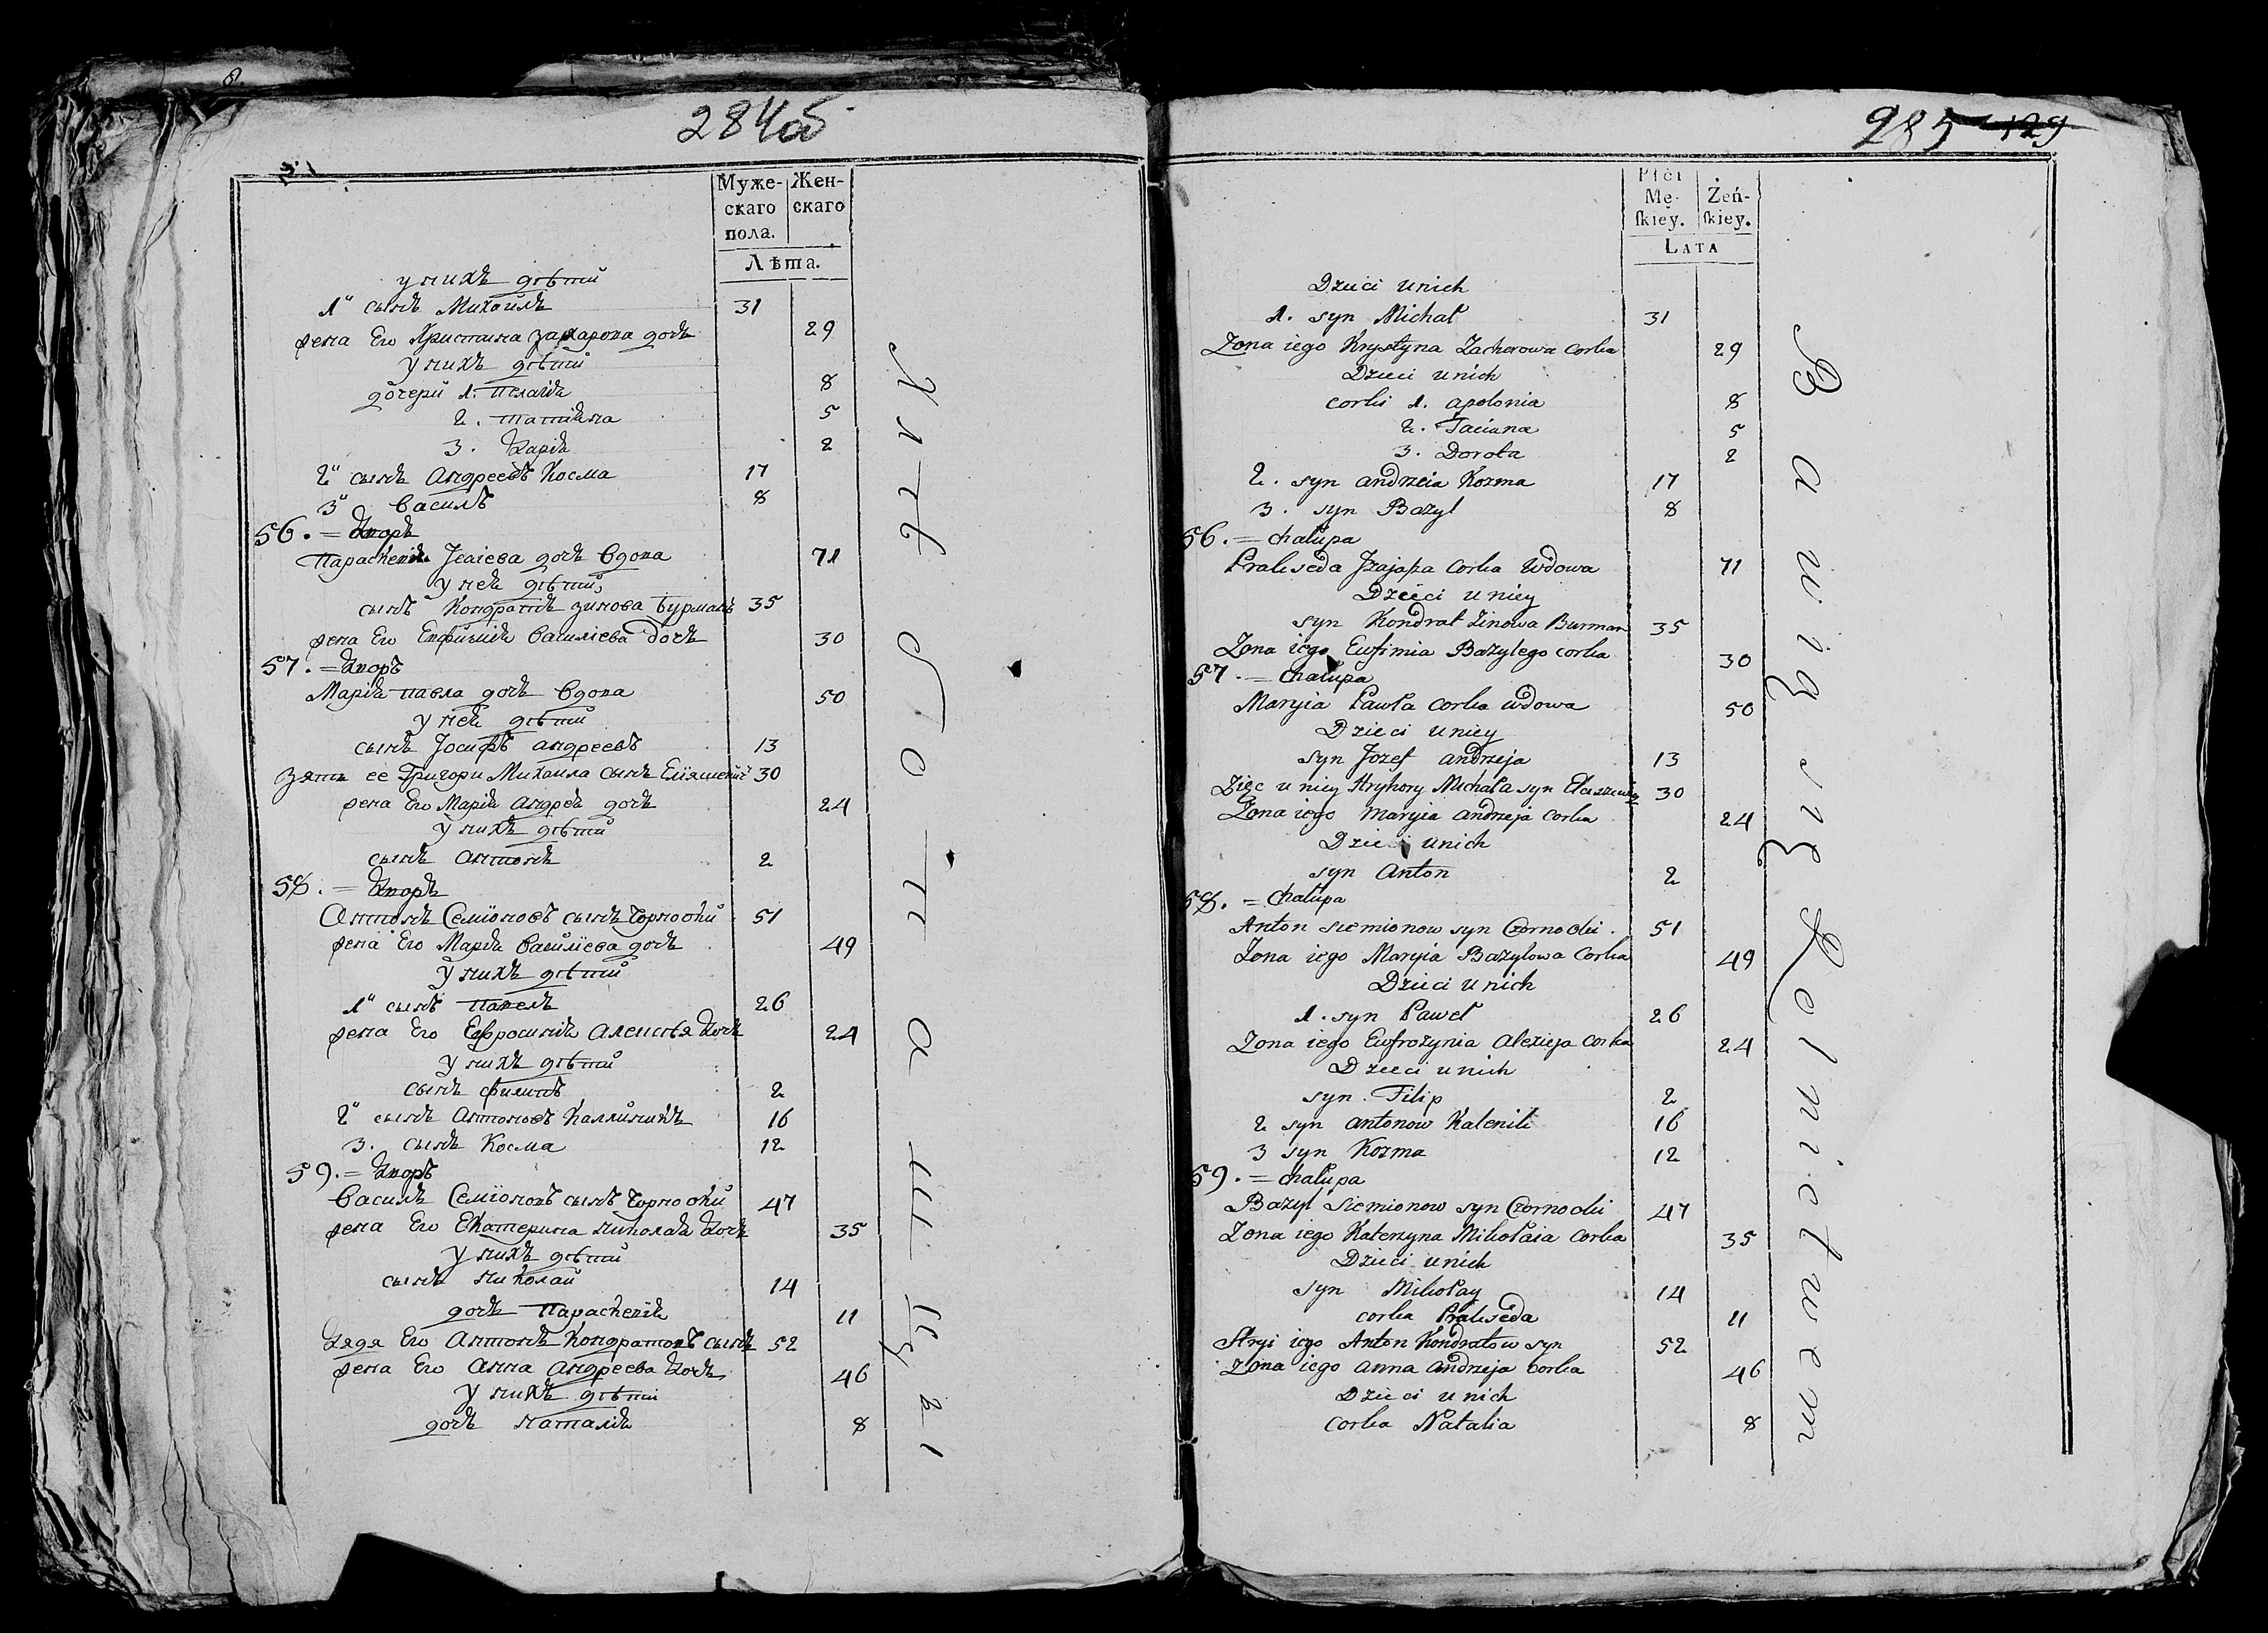 284об
Муже-
скаго
пола.
Жен-
скаго
Лѣта.
у нихъ дѣти
1й сынъ Михайлъ 31
жена Его Христина Захарова дочь 29
у нихъ дѣти
дочери 1. Пелагія 8
2. Татіяна 5
3. Дарія 2
2й сынъ Андреевъ Косма 17
3й Василь 8
56. = Дворъ
Параскевія Ісаіева дочь вдова 71
у неи дѣти
сынъ Кондратъ Зинова Бурманъ 35
жена Его Евфимія Василіева дочь 30
57. = Дворъ
Марія Павла дочь вдова 50
у неи дѣти
сынъ Іосифъ Андреевъ 13
зять ее Григори Михаила сынъ 30
жена Его Марія Андрея дочь 24
у нихъ дѣти
сынъ Антонъ 2
58. = Дворъ
Антонъ Семіоновъ сынъ Чорнооки 51
жена Его Марія Василіева дочь 49
у нихъ дѣти
1й сынъ Павелъ 26
жена Его Ефросинія Алексѣя дочь 24
у нихъ дѣти
сынъ Филипъ 2
2й сынъ Антоновъ Каллиникъ 16
3. сынъ Косма 12
59. = Дворъ
Василь Семіоновъ сынъ Чорнооки 47
жена Его Екатерина Николая дочь 35
у нихъ дѣти
сынъ Николай 14
дочь Параскевія 11
дядя Его Антонъ Кондратовъ сынъ 52
жена Его Анна Андреева дочь 46
у нихъ дѣти
дочь Наталія 8
285 129
Płci
Mę-
skiey.
Żeń-
skiey.
LATA
Dzieci unich
1. syn Michał 31
Zona iego Krystyna Zacherowa corka 29
Dzieci unich
corki 1. apolonia 8
2. Taciana 5
3. Dorota 2
2. syn andrzeia Kozma 17
3. syn Bazyl 8
56. = chałupa
Prakseda Jzajasza corka wdowa 71
Dzieci uniey
syn Kondrat Zinowa Burman 35
Zona iego Eufimia Bazylego corka 30
57. = chałupa
Maryia Pawła corka wdowa 50
Dzieci uniey
syn Jozef andrzeja 13
Zięc u niey Hryhory Michała syn Eliaszewicz 30
Zona iego maryia andrzeja corka 24
Dzieci unich
syn Anton 2
58. = chałupa
Anton siemionow syn Czornooki 51
Zona iego Maryia Bazylowa corka 49
Dzieci unich
1. syn Paweł 26
Zona iego Eufrozynia alexieja corka 24
Dzieci unich
syn. Filip 2
2 syn antonow Kalenik 16
3 syn Kozma 12
59. = chałupa
Bazyl siemionow syn Czornooki 47
Zona iego Katerzyna Mikołaia corka 35
Dzieci unich
syn Mikołay 14
corka Prakseda 11
Stryi iego Anton Kondratow syn 52
Zona iego anna andrzeja corka 46
Dzieci unich
corka Natalia 8
Bawią się Rolnictwem